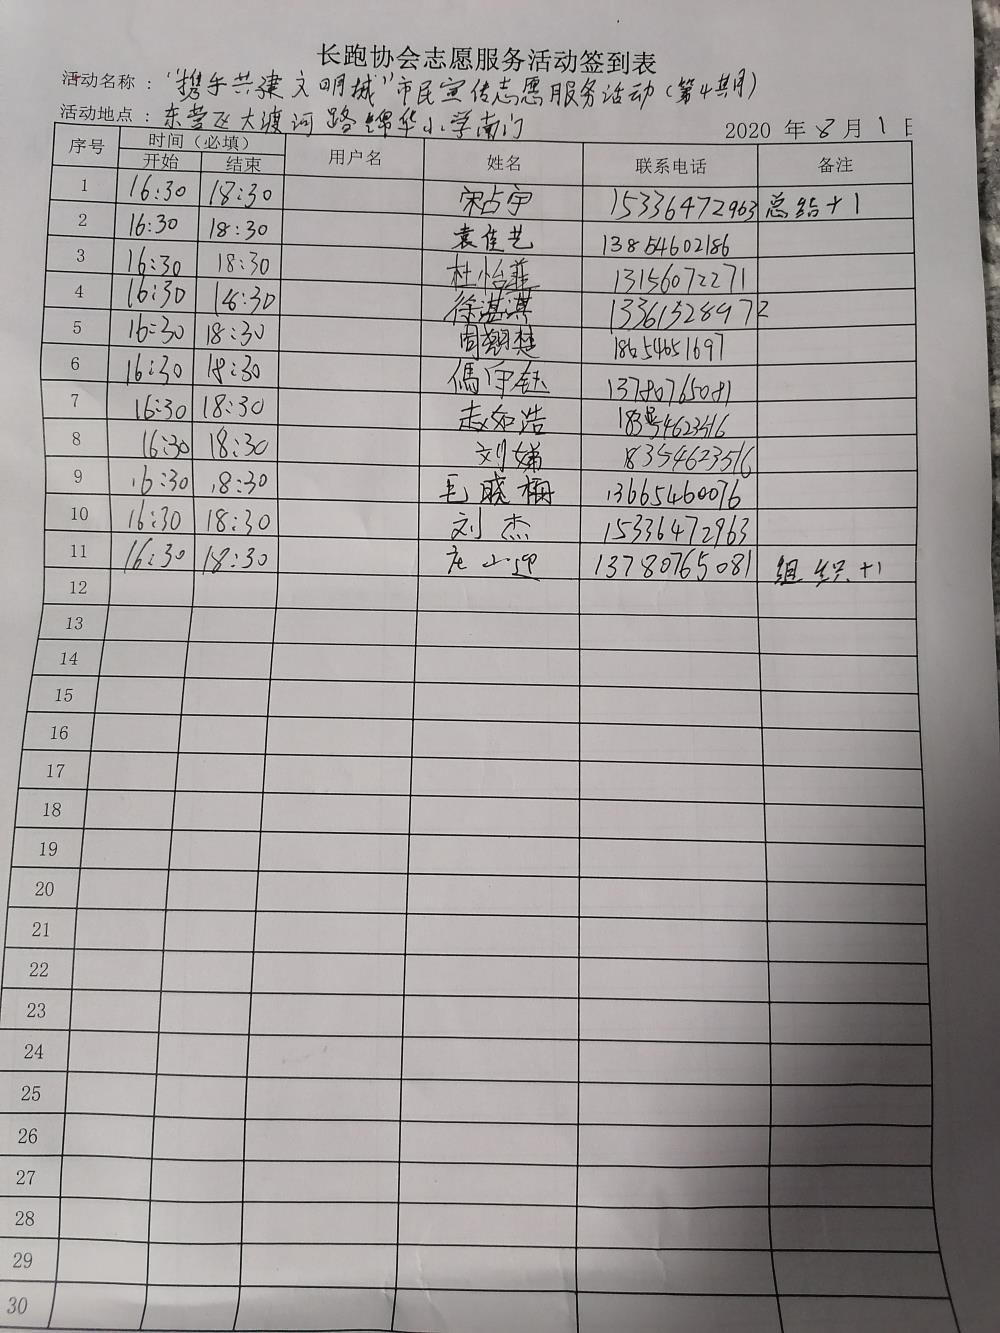 长跑协会志愿服务活动签到表
活动名称：“携手共建文明城”市民宣传志愿服务活动（第4期）
活动地点：东营区大渡河路锦华小学南门 2020年8月1日
序号 时间（必填） 用户名 姓名 联系电话 备注
开始 结束
1 16:30 18:30 宋占宇 15336472963 总结+1
2 16:30 18:30 袁佳艺 13854602186
3 16:30 18:30 杜怡菲 13156072271
4 16:30 18:30 徐湛淇 13361528972
5 16:30 18:30 周翱楚 18654651697
6 16:30 18:30 13780765081
7 16:30 18:30 赵如浩 18354623516
8 16:30 18:30 刘娣 18354623516
9 16:30 18:30 毛晓梅 13665460076
10 16:30 18:30 刘杰 15336472963
11 16:30 18:30 庄小迎 13780765081 组织+1
12
13
14
15
16
17
18
19
20
21
22
23
24
25
26
27
28
29
30